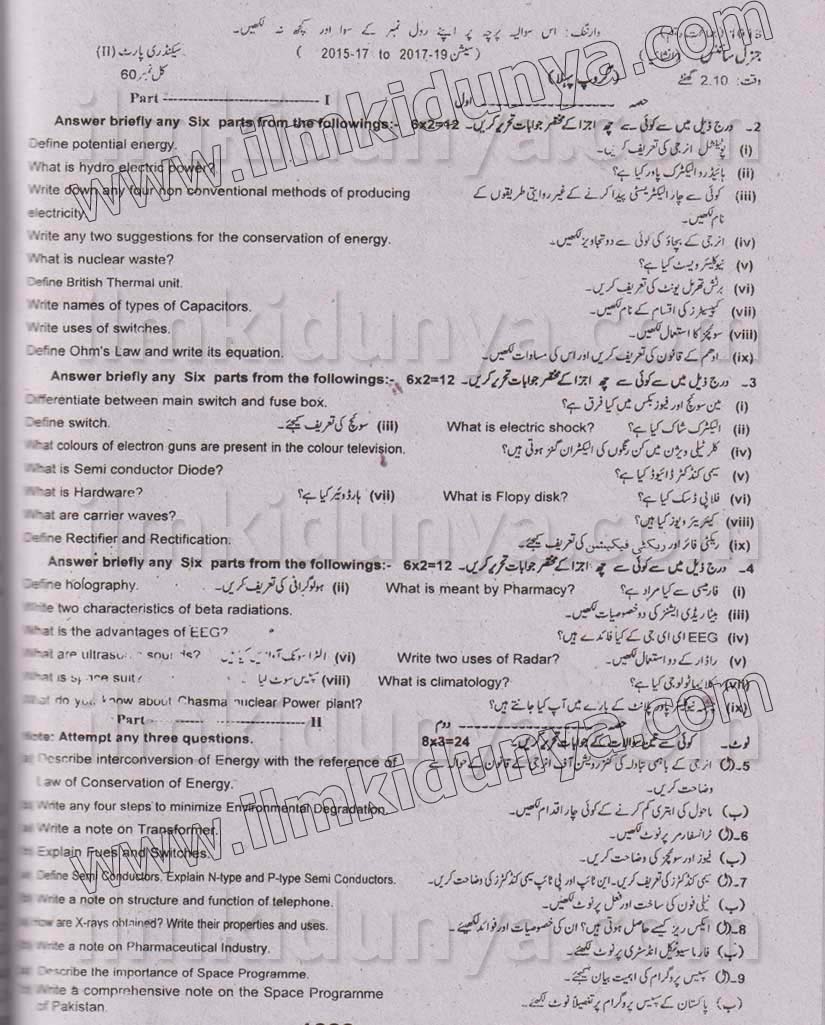 وارننگ: اس سوالیہ پرچہ پر اپنے رول نمبر کے سوا اور کچھ نہ لکھیں۔
جنرل سائنس (سیشن 2015-17 to 2017-19) سیکنڈری پارٹ (II)
وقت: 2.10 گھنٹے کل نمبر 60
Part I حصہ اول
Answer briefly any Six parts from the followings:- 6x2=12 2۔ درج ذیل میں سے کوئی سے چھ اجزا کے مختصر جوابات تحریر کریں۔
Define potential energy. (i) پوٹینشل انرجی کی تعریف کریں۔
What is hydro electric power? (ii) ہائیڈرو الیکٹرک پاور کیا ہے؟
Write down any four non conventional methods of producing (iii) کوئی سے چار الیکٹریسٹی پیدا کرنے کے غیر روایتی طریقوں کے
electricity. نام لکھیں۔
Write any two suggestions for the conservation of energy. (iv) انرجی کے بچاؤ کی کوئی سے دو تجاویز لکھیں۔
What is nuclear waste? (v) نیوکلیئر ویسٹ کیا ہے؟
Define British Thermal unit. (vi) برٹش تھرمل یونٹ کی تعریف کریں۔
Write names of types of Capacitors. (vii) کپیسیٹرز کی اقسام کے نام لکھیں۔
Write uses of switches. (viii) سوئچز کا استعمال لکھیں۔
Define Ohm's Law and write its equation. (ix) اوہم کے قانون کی تعریف کریں اور اس کی مساوات لکھیں۔
Answer briefly any Six parts from the followings:- 6x2=12 3۔ درج ذیل میں سے کوئی سے چھ اجزا کے مختصر جوابات تحریر کریں۔
Differentiate between main switch and fuse box. (i) مین سوئچ اور فیوز بکس میں کیا فرق ہے؟
Define switch. (iii) سوئچ کی تعریف کیجئے۔ What is electric shock? (ii) الیکٹرک شاک کیا ہے؟
What colours of electron guns are present in the colour television. (iv) کلر ٹیلی ویژن میں کن رنگوں کی الیکٹران گنز ہوتی ہیں؟
What is Semi conductor Diode? (v) سیمی کنڈکٹر ڈائیوڈ کیا ہے؟
What is Hardware? (vii) ہارڈ ویئر کیا ہے؟ What is Flopy disk? (vi) فلاپی ڈسک کیا ہے؟
What are carrier waves? (viii) کیریئر ویوز کیا ہیں؟
Define Rectifier and Rectification. (ix) ریکٹی فائر اور ریکٹی فیکیشن کی تعریف کیجئے۔
Answer briefly any Six parts from the followings:- 6x2=12 4۔ درج ذیل میں سے کوئی سے چھ اجزا کے مختصر جوابات تحریر کریں۔
Define holography. (ii) ہولوگرافی کی تعریف کریں۔ What is meant by Pharmacy? (i) فارمیسی سے کیا مراد ہے؟
Write two characteristics of beta radiations. (iii) بیٹا ریڈی ایشنز کی دو خصوصیات لکھیں۔
What is the advantages of EEG? (iv) EEG ای ای جی کے کیا فائدے ہیں؟
What are ultrasonic sounds? (vi) الٹرا سونک آوازیں کیا ہیں Write two uses of Radar? (v) راڈار کے دو استعمال لکھیں۔
What is space suit? (viii) سپیس سوٹ کیا What is climatology? (vii) کلائماٹولوجی کیا ہے؟
What do you know about Chasma nuclear Power plant? (ix) نیوکلیئر پاور پلانٹ کے بارے میں آپ کیا جانتے ہیں؟
Part II حصہ دوم
Note: Attempt any three questions. 8x3=24 نوٹ۔ کوئی سے تین سوالات کے جوابات تحریر کریں۔
a) Describe interconversion of Energy with the reference of 5۔(ا) انرجی کے باہمی تبادلہ کی کنزرویشن آف انرجی کے قانون کے حوالہ سے
Law of Conservation of Energy. وضاحت کریں۔
b) Write any four steps to minimize Environmental Degradation. (ب) ماحول کی ابتری کم کرنے کے کوئی چار اقدام لکھیں۔
a) Write a note on Transformer. 6۔(ا) ٹرانسفارمر پر نوٹ لکھیں۔
b) Explain Fues and Switches. (ب) فیوز اور سوئچز کی وضاحت کریں۔
a) Define Semi Conductors. Explain N-type and P-type Semi Conductors. 7۔(ا) سیمی کنڈکٹرز کی تعریف کریں۔ این ٹائپ اور پی ٹائپ سیمی کنڈکٹرز کی وضاحت کریں۔
b) Write a note on structure and function of telephone. (ب) ٹیلی فون کی ساخت اور فعل پر نوٹ لکھیں۔
a) How are X-rays obtained? Write their properties and uses. 8۔(ا) ایکس ریز کیسے حاصل ہوتی ہیں؟ ان کی خصوصیات اور فوائد لکھیئے۔
b) Write a note on Pharmaceutical Industry. (ب) فارماسیوٹیکل انڈسٹری پر نوٹ لکھئے۔
a) Describe the importance of Space Programme. 9۔(ا) سپیس پروگرام کی اہمیت بیان کیجئے۔
b) Write a comprehensive note on the Space Programme (ب) پاکستان کے سپیس پروگرام پر تفصیلاً نوٹ لکھئے۔
of Pakistan.
www.ilmkidunya.com
www.ilmkidunya.com
ilmkidunya.com
ilmkidunya.com
ilmkidunya.com
ilmkidunya.com
ilmkidunya.com